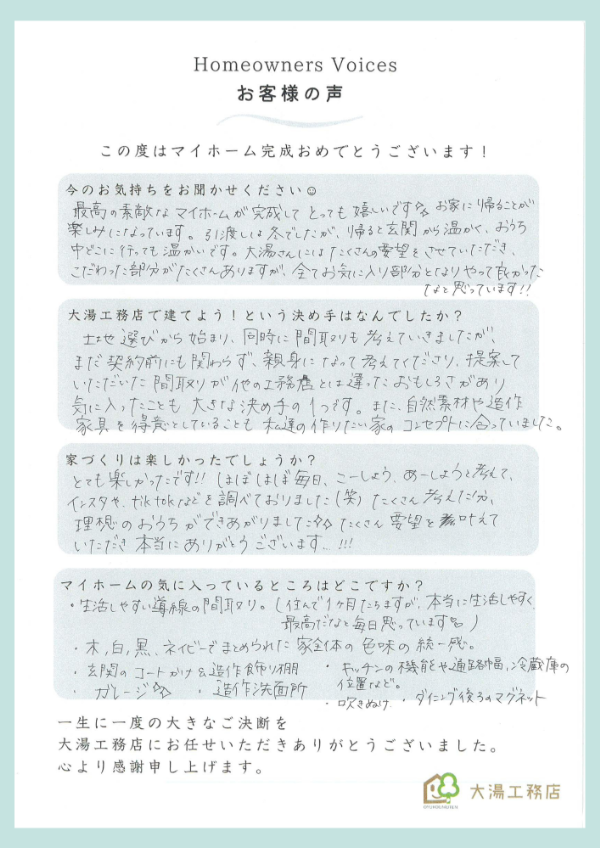 Homeowners Voices
お客様の声
この度はマイホーム完成おめでとうございます！
今のお気持ちをお聞かせください☺
最高の素敵なマイホームが完成してとっても嬉しいです☆ お家に帰ることが
楽しみになっています。引渡しは冬でしたが、帰ると玄関から温かく、おうち
中どこに行っても温かいです。大湯さんにはたくさんの要望をさせていただき、
こだわった部分がたくさんありますが、全てお気に入り部分となりやって良かった
なと思っています!!
大湯工務店で建てよう！という決め手はなんでしたか？
土地選びから始まり、同時に間取りも考えていきましたが、
まだ契約前にも関わらず、親身になって考えてくださり、提案して
いただいた間取りが他の工務店とは違ったおもしろさがあり
気に入ったことも大きな決め手の1つです。また、自然素材や造作
家具を得意としていることも私達の作りたい家のコンセプトに合っていました。
家づくりは楽しかったでしょうか？
とても楽しかったです!! ほぼほぼ毎日、こーしよう、あーしようと考えて、
インスタや、tiktokなどを調べておりました(笑) たくさん考えた分、
理想のおうちができあがりました☆☆ たくさん要望を叶えて
いただき本当にありがとうございます。!!!
マイホームの気に入っているところはどこですか？
・生活しやすい導線の間取り。(住んで1ヶ月たちますが、本当に生活しやすく、
最高だなと毎日思っています)
・木、白、黒、ネイビーでまとめられた家全体の色味の統一感。
・玄関のコートかけ&造作飾り棚
・キッチンの機能や通路幅、冷蔵庫の
位置など。
・ガレージ☆☆ ・造作洗面所
・吹きぬけ ・ダイニング後ろのマグネット
一生に一度の大きなご決断を
大湯工務店にお任せいただきありがとうございました。
心より感謝申し上げます。
大湯工務店